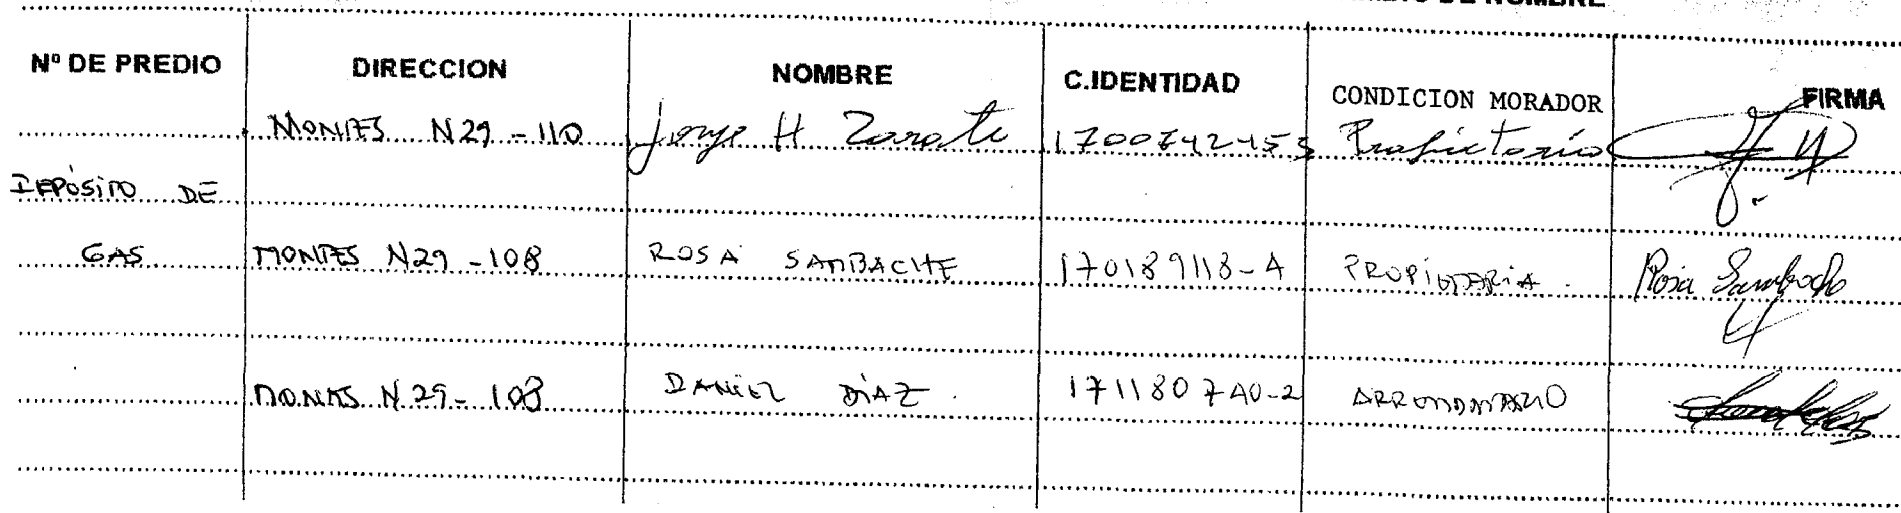 DE NOMBRE
Nº DE PREDIO DIRECCION NOMBRE C.IDENTIDAD CONDICION MORADOR FIRMA
MONTES N29-110 Jorge H Zarate Propietario
DEPÓSITO DE
GAS MONTES N29-108 ROSA SAMBACHE 170189118-4 PROPIETARIA. Rosa Sambache
MONTES N29-108 DANIEL DÍAZ. 171180740-2 ARRENDATARIO